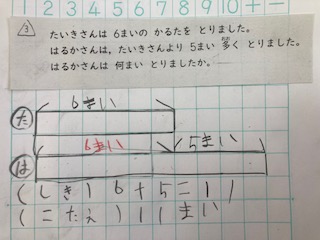 1 2 3 4 5 6 7 8 9 10 + −
3
たいきさんは 6まいの かるたを とりました。
はるかさんは、たいきさんより 5まい 多く とりました。
はるかさんは 何まい とりましたか。
6まい
た
6まい 5まい
は
(しき) 6+5=11
(こたえ) 11まい